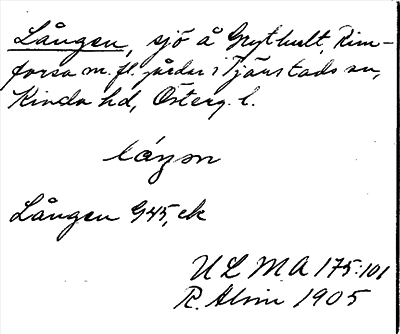 Lången, sjö å Grythult, Rim-
forsa m. fl. gårdar i Tjärstads sn,
Kinda hd, Österg. l.
Lången G45, ek
ULMA 175:101
R. Alm 1905